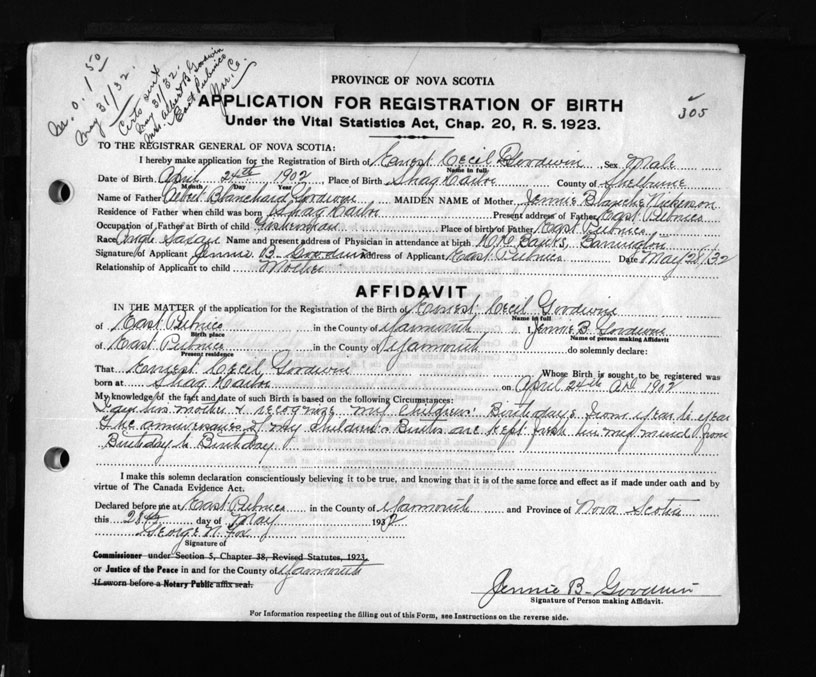 M. O. 1.50
May 31/32.
Cert. sent
May 31/32.
Mrs. Albert B. Goodwin
East Pubnico
Yar. Co.
305
PROVINCE OF NOVA SCOTIA
APPLICATION FOR REGISTRATION OF BIRTH
Under the Vital Statistics Act, Chap. 20, R. S. 1923.
TO THE REGISTRAR GENERAL OF NOVA SCOTIA:
I hereby make application for the Registration of Birth of Ernest Cecil Goodwin Sex Male
Name in full
Date of Birth April 24th 1902 Place of Birth Shag Harbor County of Shelburne
Month Day Year
Name of Father Albert Blanchard Goodwin MAIDEN NAME of Mother Jennie Blanche Nickerson
Residence of Father when child was born Shag Harbor Present address of Father East Pubnico
Occupation of Father at Birth of child Fisherman Place of birth of Father East Pubnico
Race Anglo Saxon Name and present address of Physician in attendance at birth Banks, Barrington
Signature of Applicant Jennie B. Goodwin Address of Applicant East Pubnico Date May 28/32
Relationship of Applicant to child Mother
AFFIDAVIT
IN THE MATTER of the application for the Registration of the Birth of Ernest Cecil Goodwin
Name in full
of East Pubnico in the County of Yarmouth I, Jennie B. Goodwin
Birth place Name of person making Affidavit
of East Pubnico in the County of Yarmouth do solemnly declare:
Present residence
That Ernest Cecil Goodwin Whose Birth is sought to be registered was
born at Shag Harbor on April 24th AD 1902
My knowledge of the fact and date of such Birth is based on the following Circumstances:
I am his mother & recognize my Childrens Birthdays from year to year
The anniversaries of my Children's Births are kept fresh in my mind from
Birthday to Birthday
I make this solemn declaration conscientiously believing it to be true, and knowing that it is of the same force and effect as if made under oath and by
virtue of The Canada Evidence Act.
Declared before me at East Pubnico in the County of Yarmouth and Province of Nova Scotia
this 28th day of May 1932
George N. Fox
Signature of
Commissioner under Section 5, Chapter 38, Revised Statutes, 1923,
or Justice of the Peace in and for the County of Yarmouth
If sworn before a Notary Public affix seal.
Jennie B. Goodwin
Signature of Person making Affidavit.
For Information respecting the filling out of this Form, see Instructions on the reverse side.